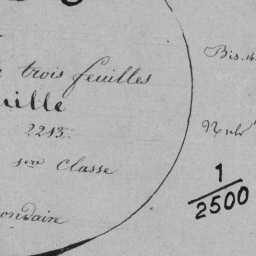 trois feuilles
uille
2213.
1ère Classe
ondaire
Bis.
1
2500